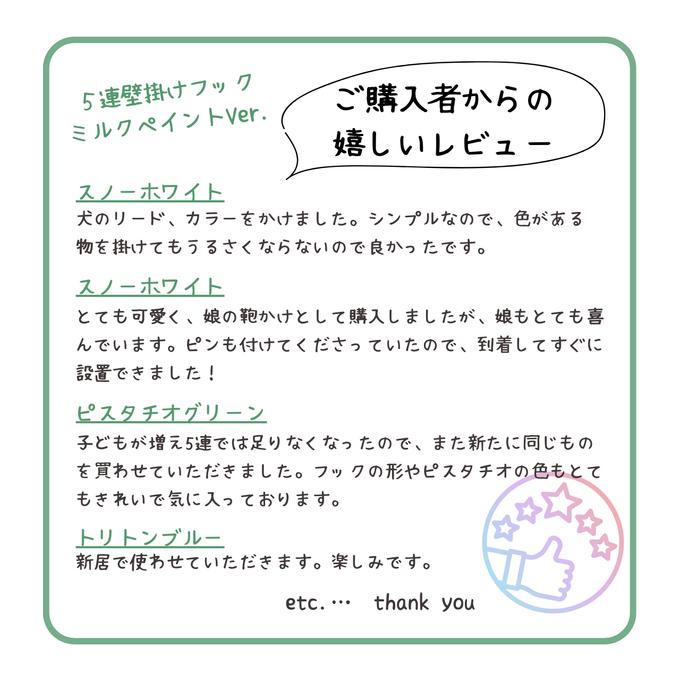 5連壁掛けフック
ミルクペイントVer.
ご購入者からの
嬉しいレビュー
スノーホワイト
犬のリード、カラーをかけました。シンプルなので、色がある
物を掛けてもうるさくならないので良かったです。
スノーホワイト
とても可愛く、娘の鞄かけとして購入しましたが、娘もとても喜
んでいます。ピンも付けてくださっていたので、到着してすぐに
設置できました！
ピスタチオグリーン
子どもが増え5連では足りなくなったので、また新たに同じもの
を買わせていただきました。フックの形やピスタチオの色もとて
もきれいで気に入っております。
トリトンブルー
新居で使わせていただきます。楽しみです。
etc.… thank you